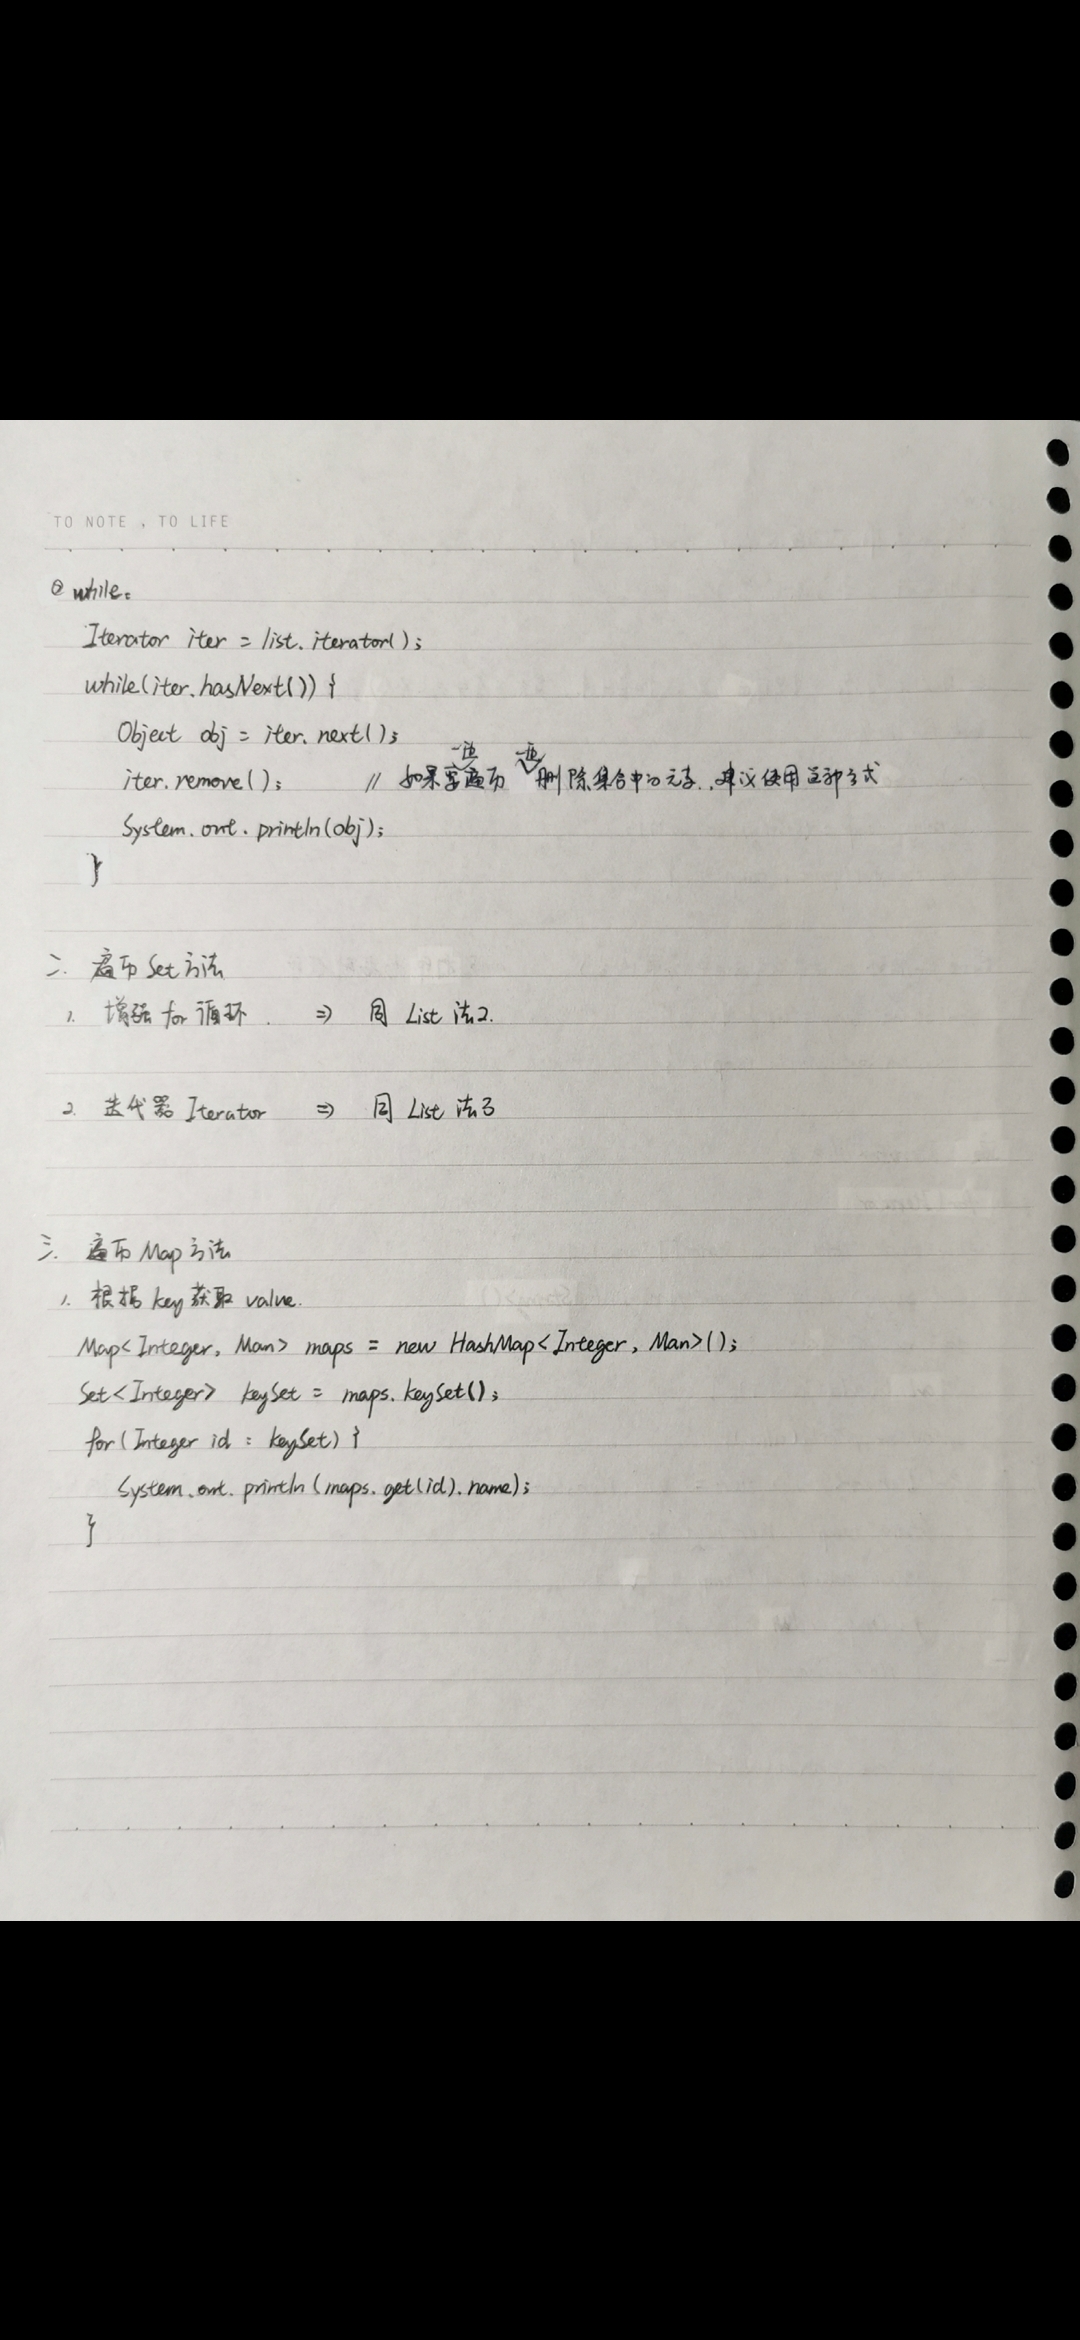 TO NOTE , TO LIFE
② while:
Iterator iter = list.iterator();
while(iter.hasNext()) {
Object obj = iter.next();
iter.remove(); // 如果要一边遍历一边删除集合中的元素,建议使用这种方式
System.out.println(obj);
}
二. 遍历 Set 方法
1. 增强 for 循环. => 同 List 法2.
2. 迭代器 Iterator => 同 List 法3
三. 遍历 Map 方法
1. 根据 key 获取 value.
Map<Integer, Man> maps = new HashMap<Integer, Man>();
Set<Integer> keySet = maps.keySet();
for(Integer id : keySet) {
System.out.println(maps.get(id).name);
}